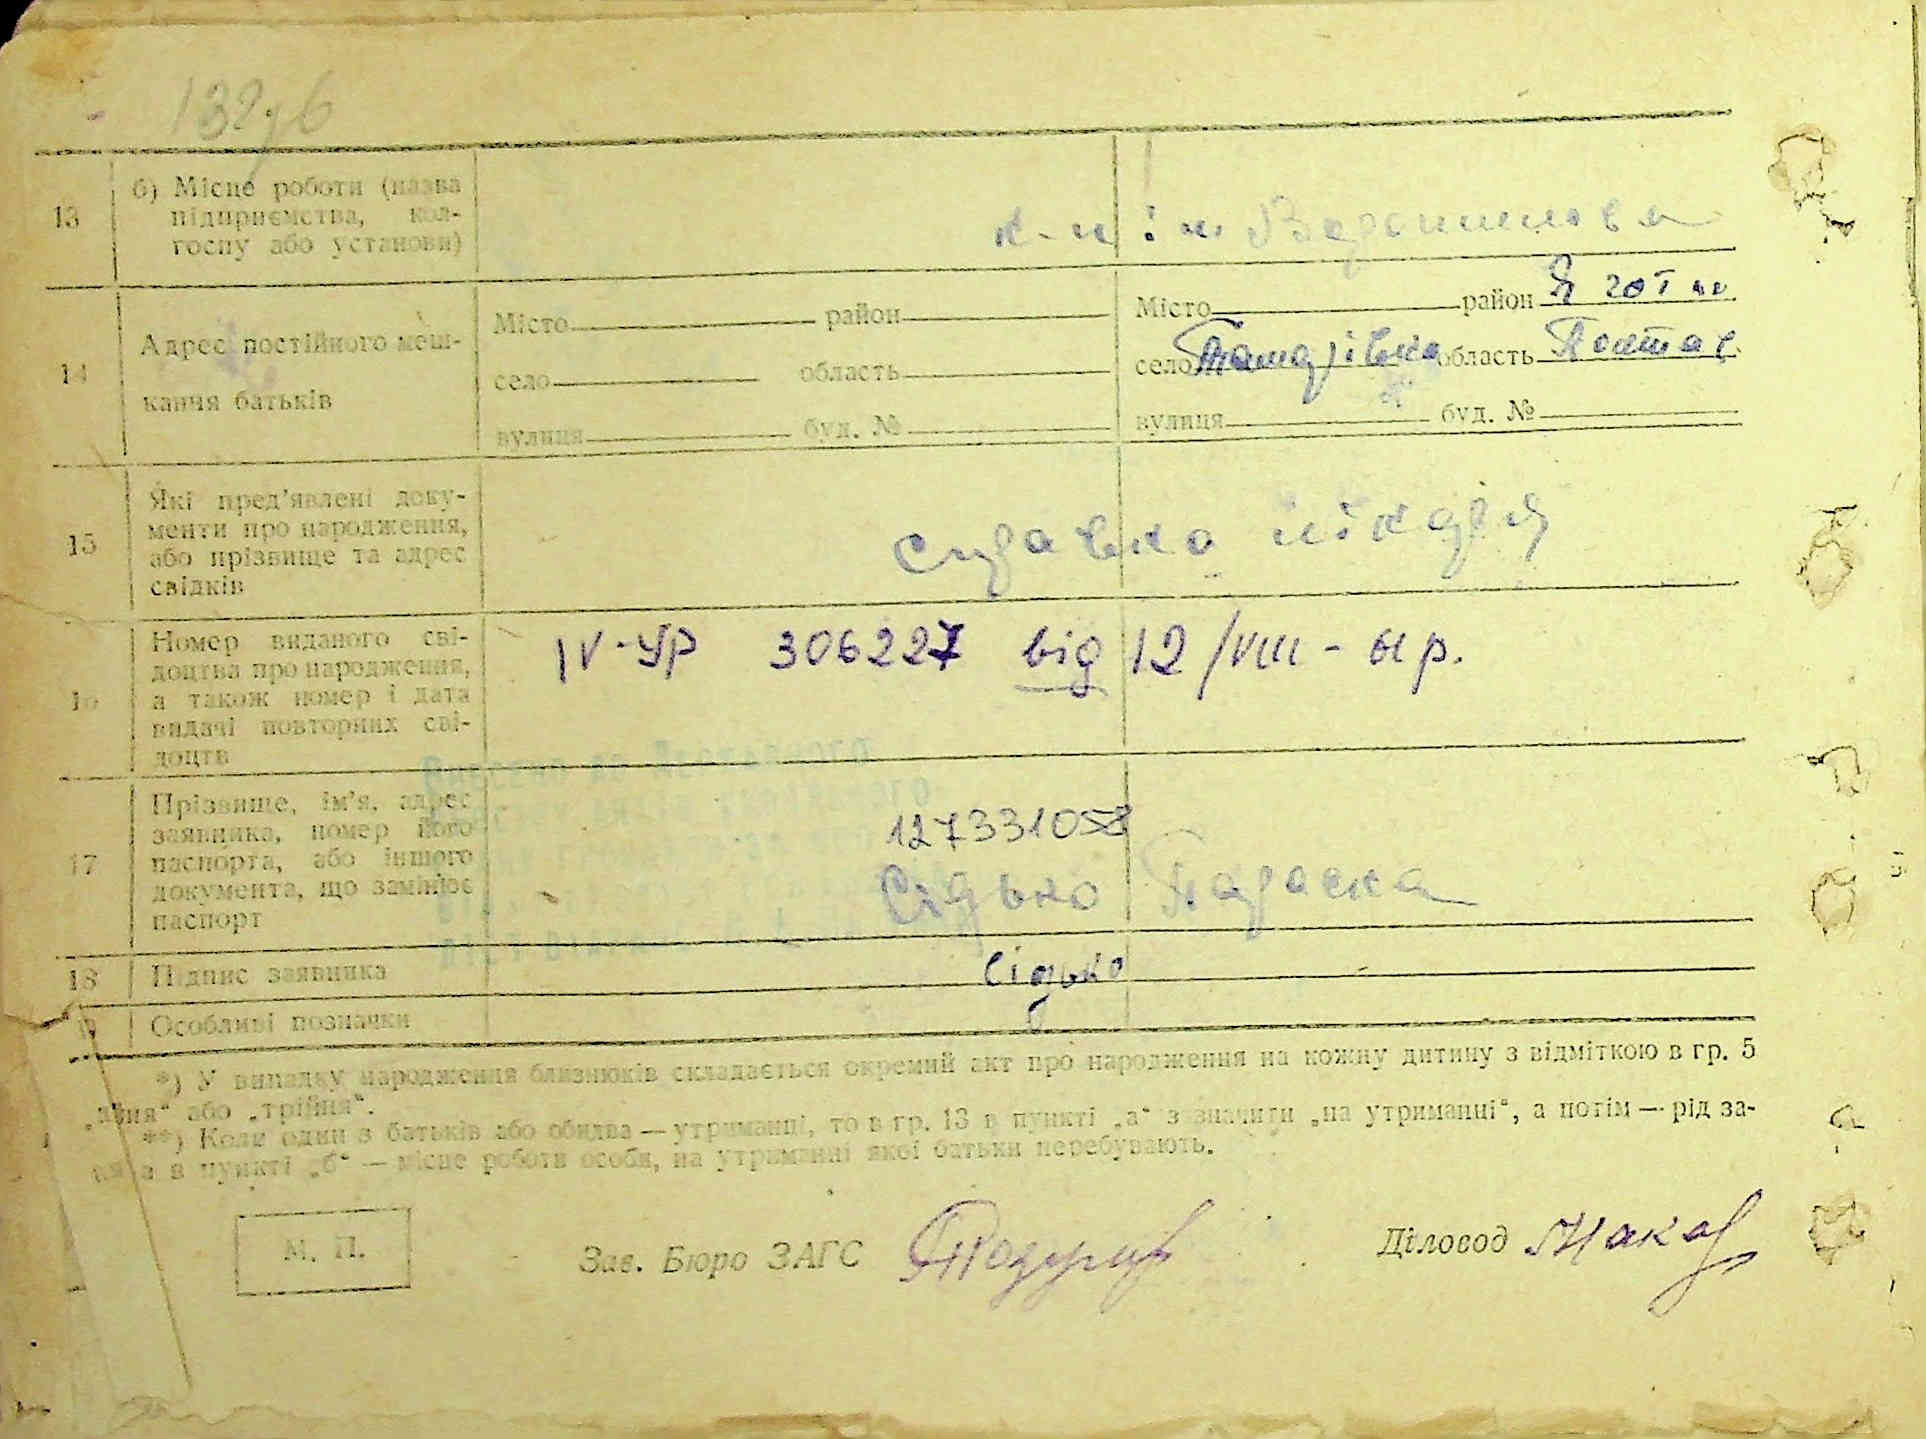 13
б) Місце роботи (назва
підприємства, кол-
госпу або установи)
к-п ім Ворошилова
14
Адрес постійного меш-
кання батьків
Місто район
село область
вулиця буд. №
Місто район
село область Полтав
вулиця буд. №
15
Які пред'явлені доку-
менти про народження,
або прізвище та адрес
свідків
справка лікаря
16
Номер виданого сві-
доцтва про народження,
а також номер і дата
видачі повторних сві-
доцтв
IV-УР 306227 від 12/VIII-
17
Прізвище, ім'я, адрес
заявника, номер його
паспорта, або іншого
документа, що замінює
паспорт
Сідько Параска
18
Підпис заявника
Сідько
19
Особливі позначки
*) У випадку народження близнюків складається окремий акт про народження на кожну дитину з відміткою в гр. 5
або „трійня“.
**) Коли один з батьків або обидва — утриманці, то в гр. 13 в пункті „а“ зазначити „на утриманні“, а потім — рід за-
а в пункті „б“ — місце роботи особи, на утриманні якої батьки перебувають.
М. П.
Зав. Бюро ЗАГС
Діловод